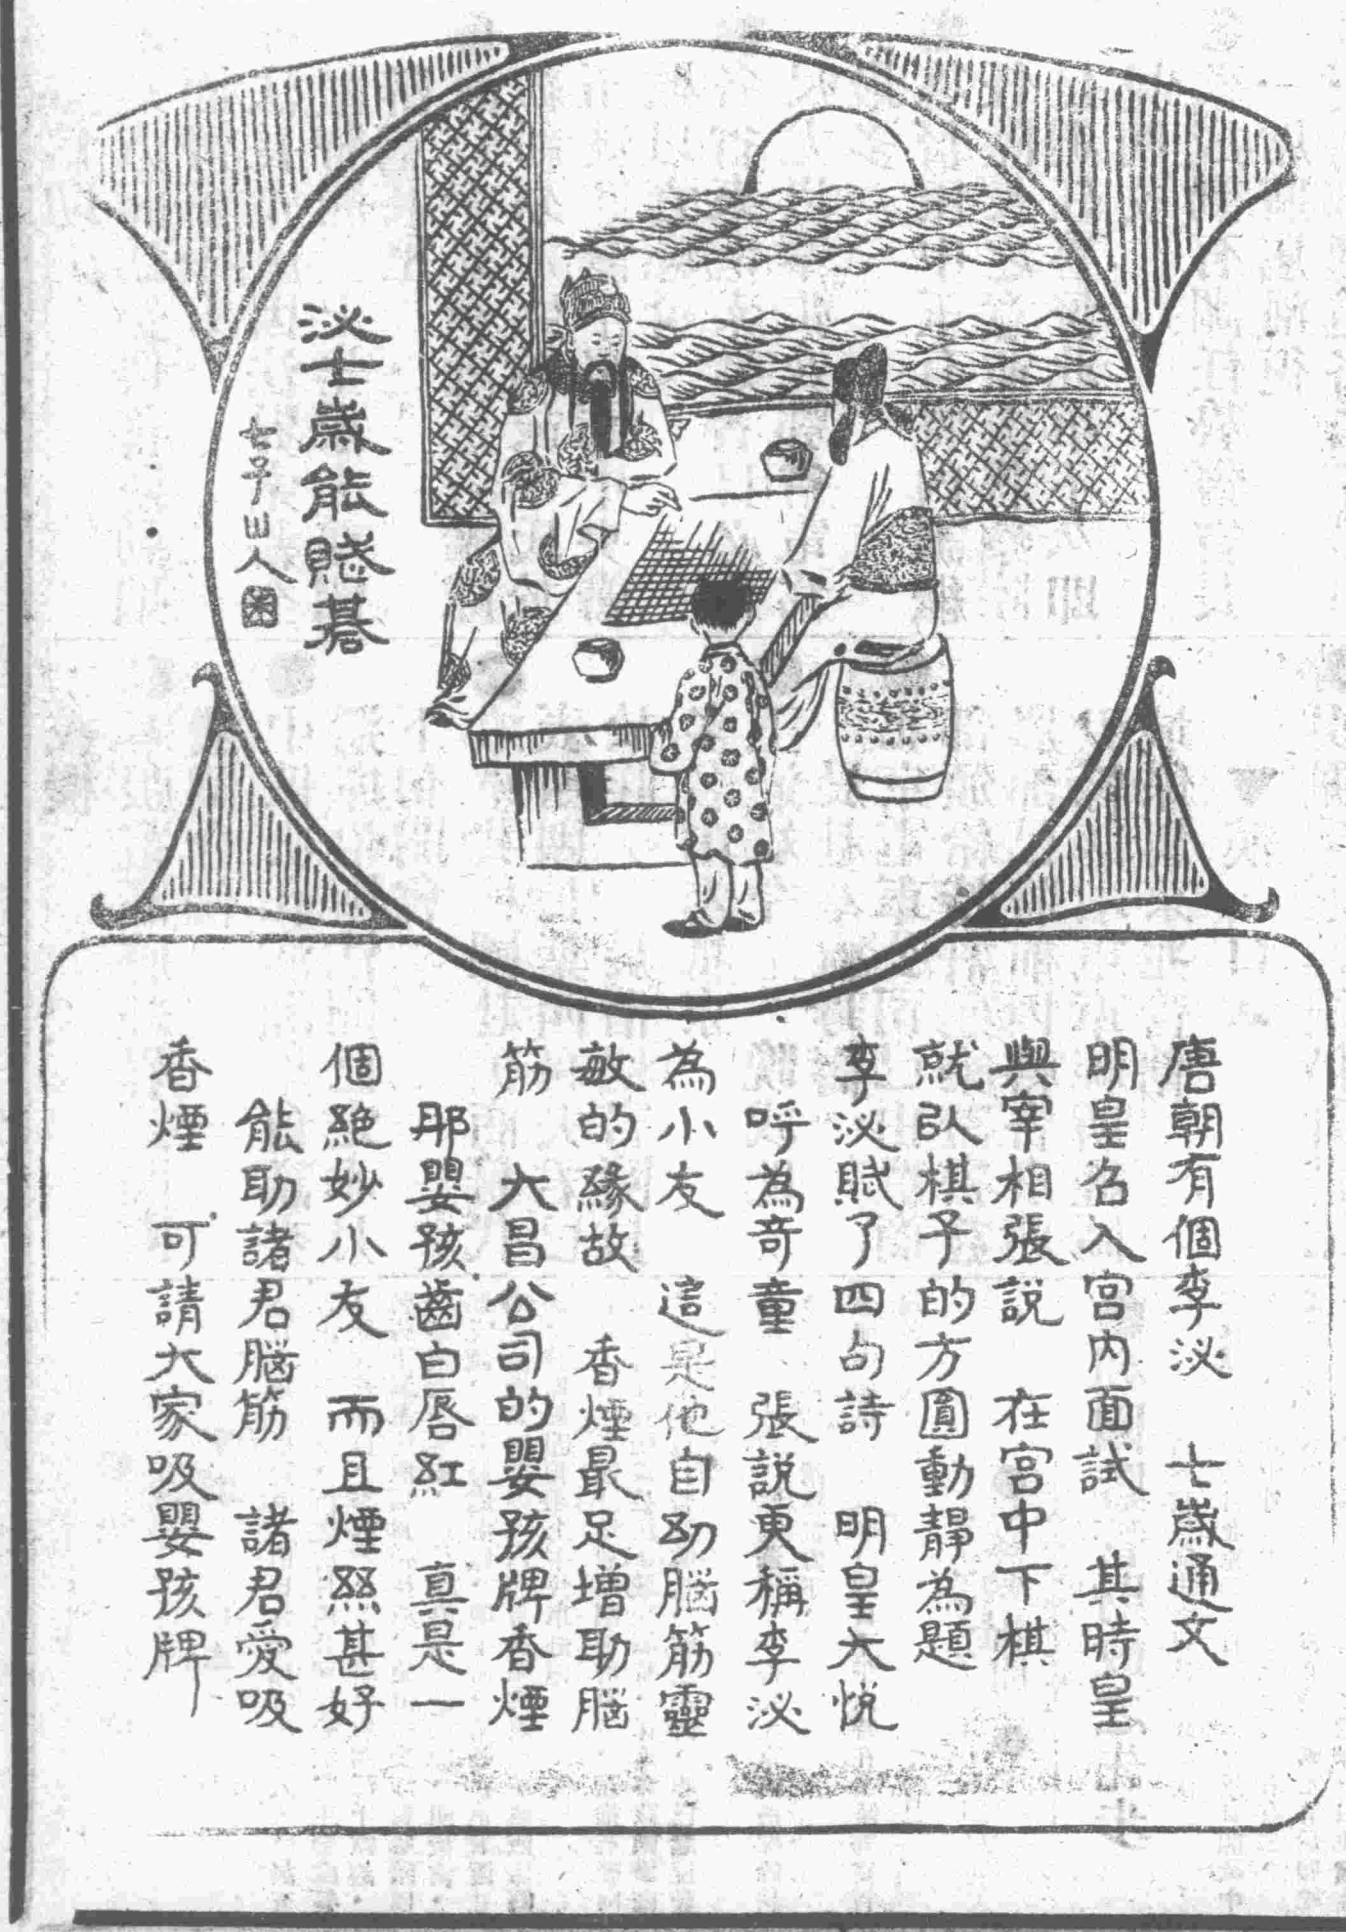 泌七歲能賦碁
七子山人圖
唐朝有個李泌　七歲通文
明皇召入宮內面試　其時皇
與宰相張說　在宮中下棋
就以棋子的方圓動靜為題
李泌賦了四句詩　明皇大悅
呼為奇童　張說更稱李泌
為小友　這是他自幼腦筋靈
敏的緣故　香煙最足增助腦
筋　大昌公司的嬰孩牌香煙
那嬰孩齒白唇紅　真是一
個絕妙小友　而且煙絲甚好
能助諸君腦筋　諸君愛吸
香煙　可請大家吸嬰孩牌